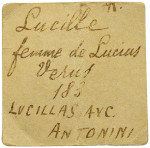 Lucille
femme de Lucius
Verus
183
LUCILLAE AVG
ANTONINI